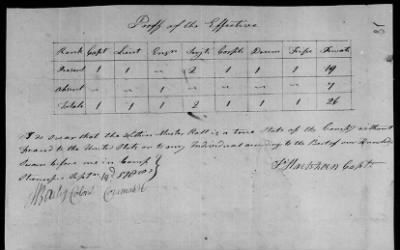 Proff of the Effective
Rank Capt Lieut Ensn Sergts Corpls Drum Fife Private
Present 1 1 " 2 1 1 1 19
Absent " " 1 " " " " 7
Totals 1 1 1 2 1 1 1 26
I do Swear that the Within Muster Roll is a true State of the Company without
fraud to the United States or to any Individual according to the Best of my Knowledge
Sworn before me in Camp
Septm 14th
Capt